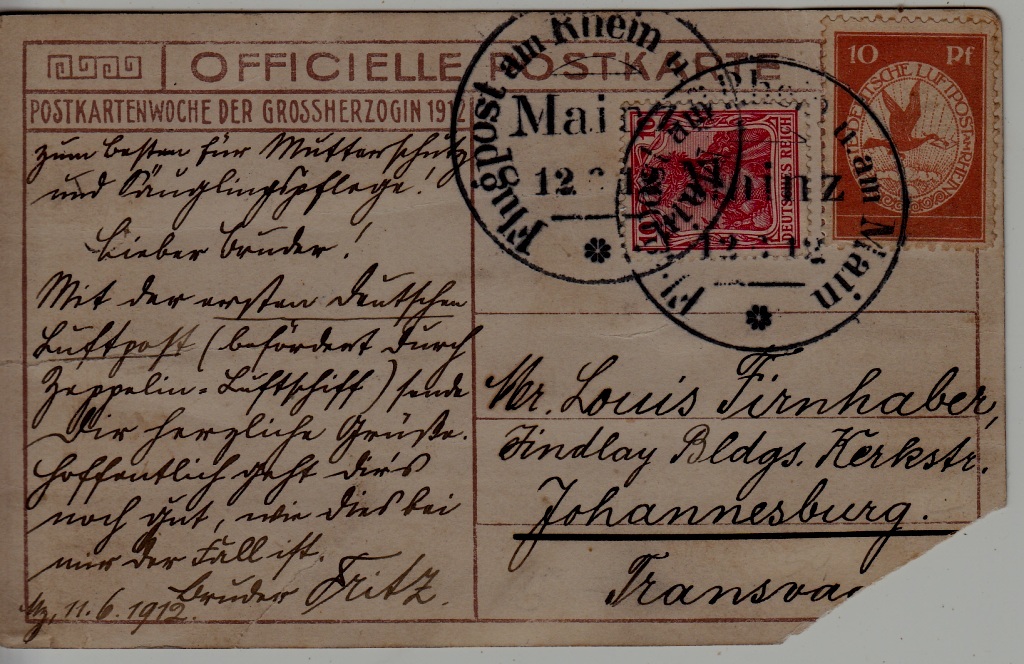 OFFICIELLE POSTKARTE
POSTKARTENWOCHE DER GROSSHERZOGIN 1912
zum Besten für Mutterschutz
und Säuglingspflege!
Lieber Bruder!
Mit der ersten deutschen
Luftpost (befördert durch
Zeppelin-Luftschiff) sende
Dir herzliche Grüße.
Hoffentlich geht dir's
noch gut, wie dies bei
mir der Fall ist.
Bruder Fritz.
Mz, 11.6.1912.
Flugpost am Rhein u.
Mai
12
10
DEUTSCHES REICH
10
am Rhein u. am Main
Mainz
12
10 Pf
DEUTSCHE LUFTPOST AM RHEIN
Mr. Louis Firnhaber,
Findlay Bldgs. Kerkstr.
Johannesburg.
Transvaa